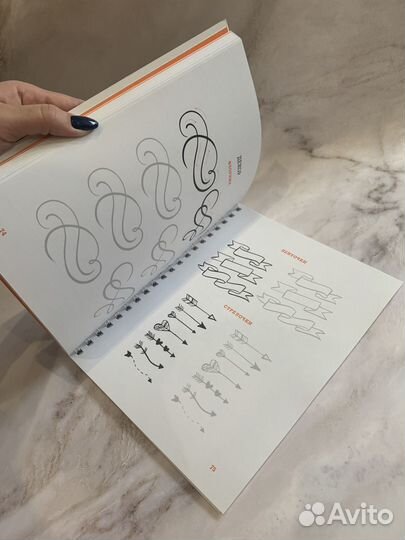 74
ЛЕНТОЧКИ
СТРЕЛОЧКИ
75
Avito